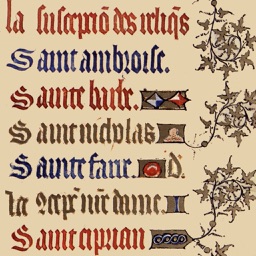 la suscepciõ des reliq̃s
Saint ambroise.
Sainte barbe.
Saint nicholas
Sainte fare. D.
la ꝯcep̃ nr̃e dame.
Saint ciprian